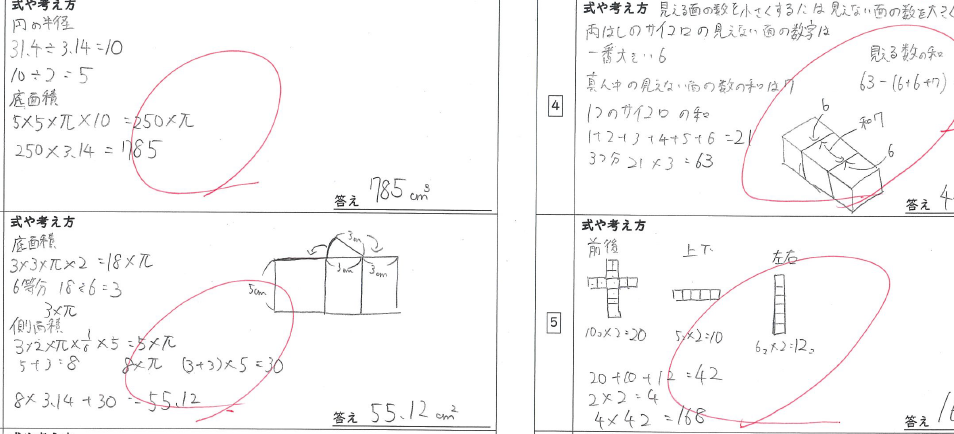 式や考え方
円の半径
31.4÷3.14=10
10÷2=5
底面積
5×5×π×10=250×π
250×3.14=785
答え 785cm³
式や考え方
底面積
3×3×π×2=18×π
6等分 18÷6=3
3×π
側面積
3×2×π×1/6×5=5×π
5+3=8 8×π (3+3)×5=30
8×3.14+30=55.12
3cm
3cm
3cm
5cm
答え 55.12cm²
式や考え方
式や考え方 見える面の数を小さくするには見えない面の数を大きく
両はしのサイコロの見えない面の数字は
一番大きい6
真ん中の見えない面の数の和は7
1つのサイコロの和
1+2+3+4+5+6=21
3つ分 21×3=63
見える数の和
63-(6+6+7)
6
和7
6
4
答え 4
式や考え方
前後
上下
左右
5
10×2=20
5×2=10
6×2=12
20+10+12=42
2×2=4
4×42=168
答え 16